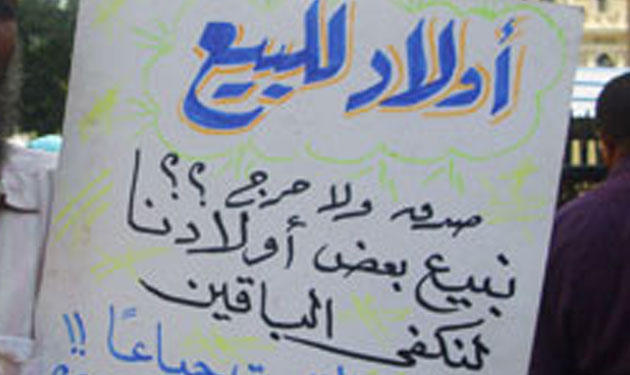 أولاد للبيع
صدق ولا حرج ؟؟
نبيع بعض أولادنا
لنكفى الباقين
جياعاً !!